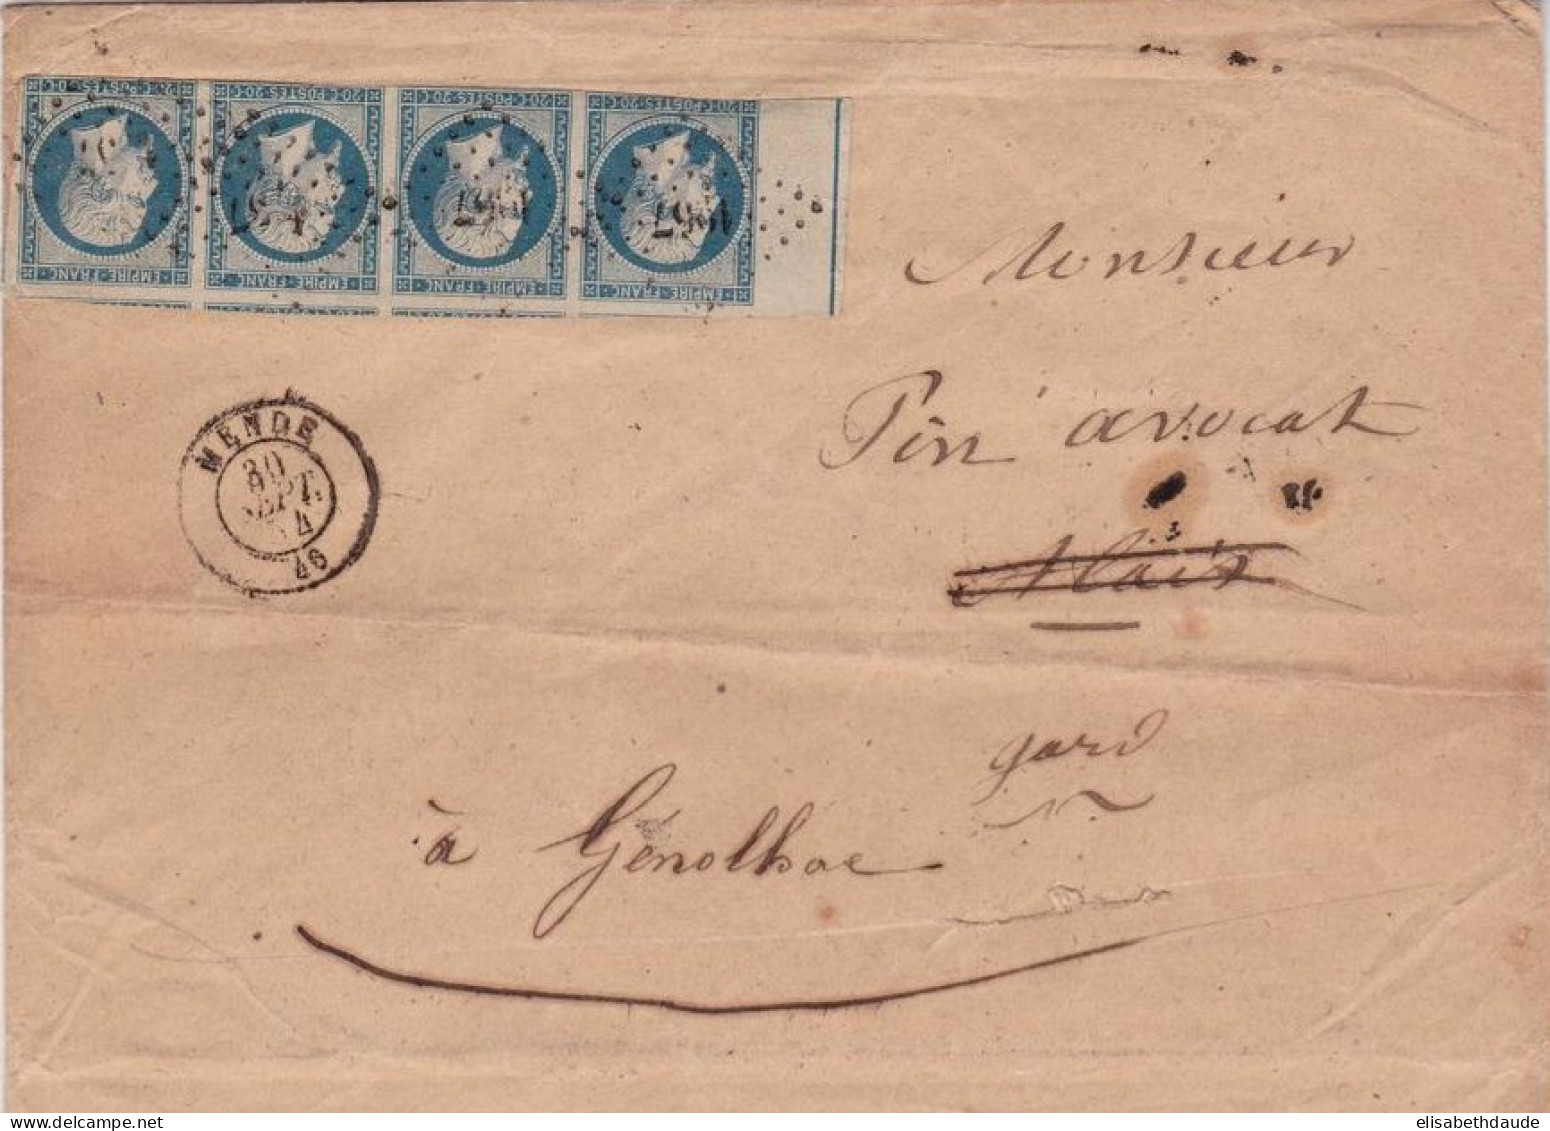 20·C·POSTES·20·C 20·C·POSTES·20·C 20·C·POSTES·20·C 20·C·POSTES·20·C
1967 1967
EMPIRE·FRANC· EMPIRE·FRANC· EMPIRE·FRANC· EMPIRE·FRANC·
Monsieur
Pin avocat
Alais
MENDE
30
SEPT.
54
46
gard
à Génolhac
elisabethdaude